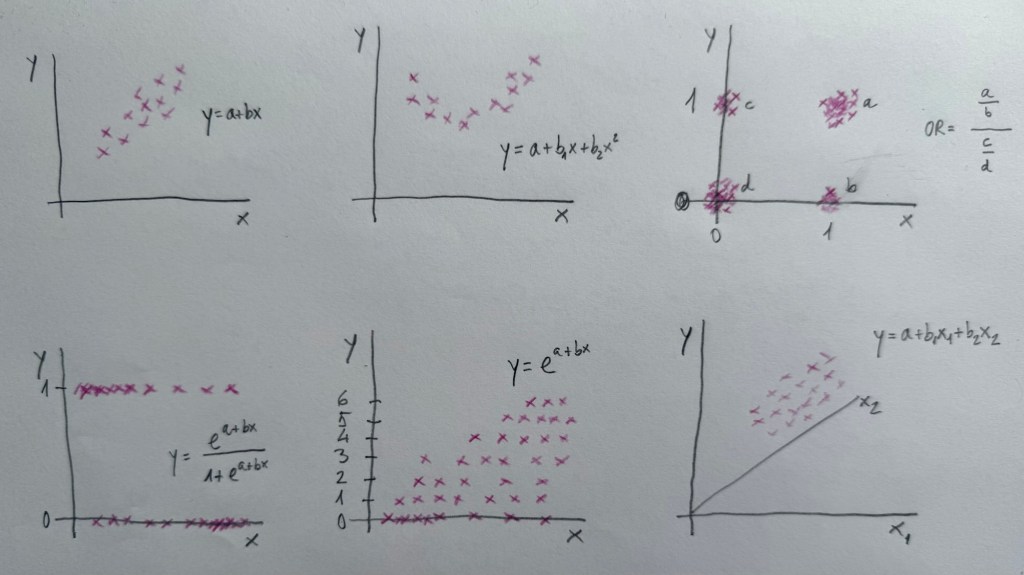 y
y = a+bx
x
y
y = a+b₁x+b₂x²
x
y
1
c
a
d
b
0
0
1
x
OR = a/b / c/d
y
1
y = e^(a+bx) / 1+e^(a+bx)
0
x
y
y = e^(a+bx)
6
5
4
3
2
1
0
x
y
y = a+b₁x₁+b₂x₂
x₂
x₁